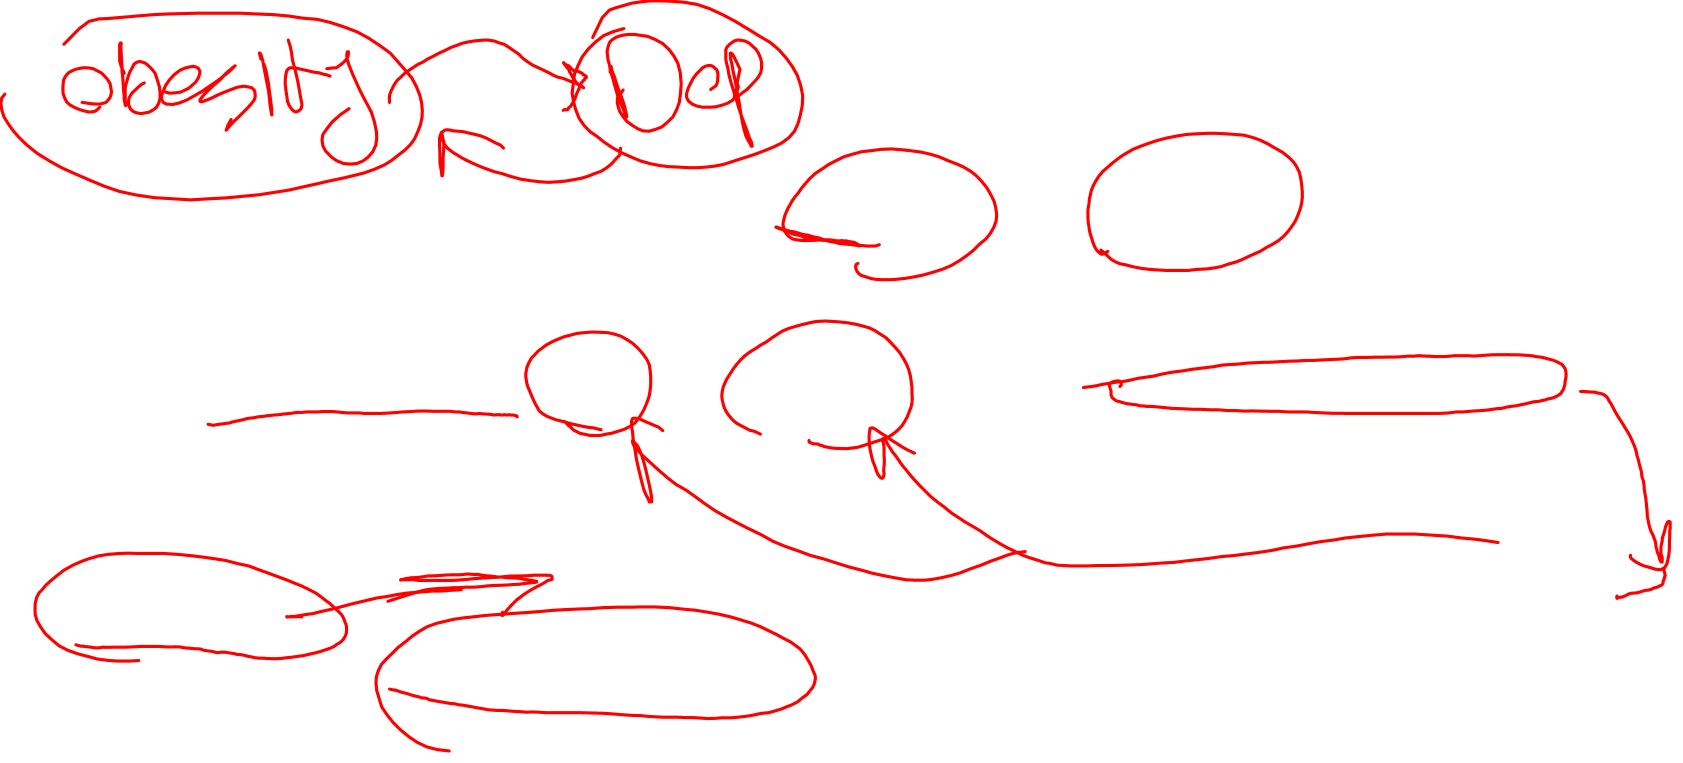 obesity Dep